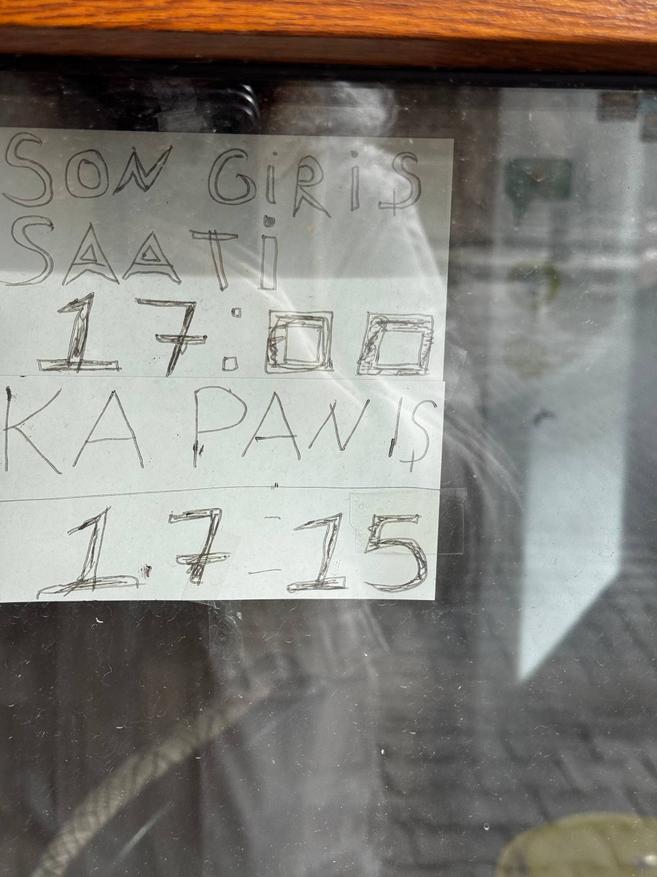 SON GİRİŞ
SAATİ
17:00
KAPANIŞ
17-15